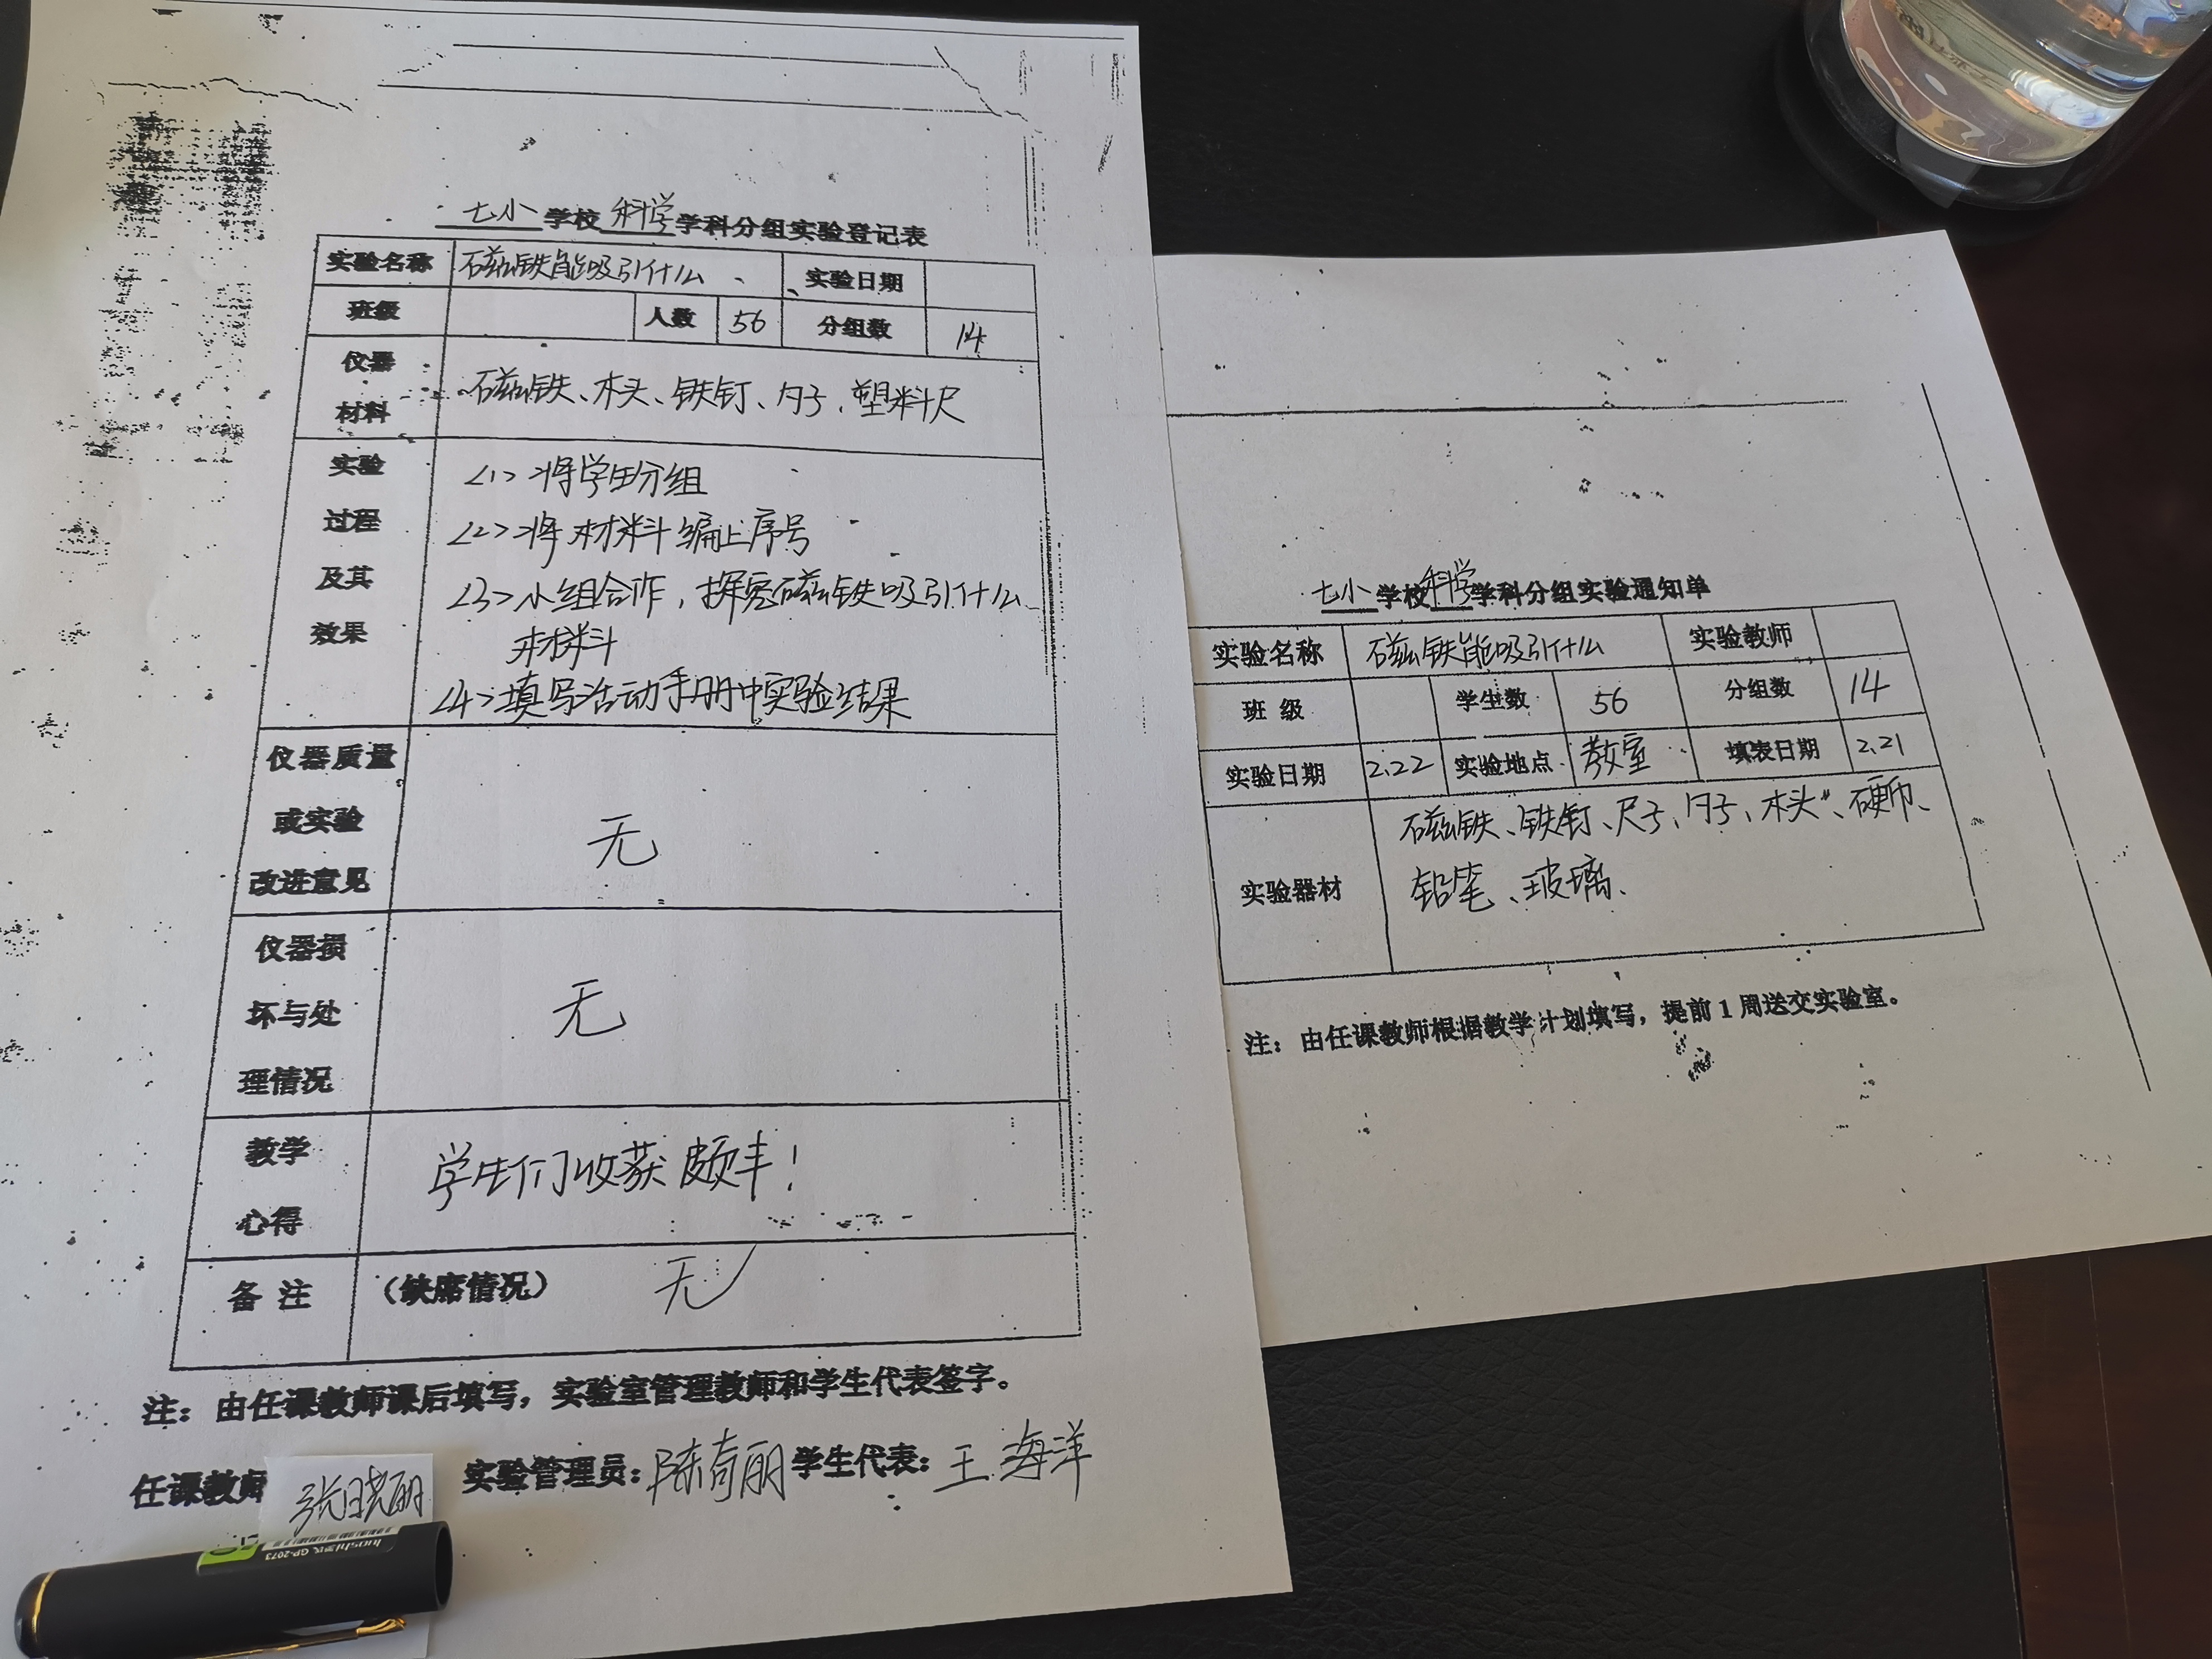 七小学校科学学科分组实验登记表
实验名称 磁铁能吸引什么 实验日期
班级 人数 56 分组数 14
仪器材料 磁铁、木头、铁钉、勺子、塑料尺
实验过程及其效果
<1> 将学生分组
<2> 将材料编上序号
<3> 小组合作，探究磁铁吸引什么
材料
<4> 填写活动手册中实验结果
仪器质量或实验改进意见 无
仪器损坏与处理情况 无
教学心得 学生们收获颇丰！
备注 （缺席情况） 无
注：由任课教师课后填写，实验室管理教师和学生代表签字。
任课教师 张晓丽 实验管理员：陈奇丽 学生代表：王海洋
GP-2073
七小学校科学学科分组实验通知单
实验名称 磁铁能吸引什么 实验教师
班级 学生数 56 分组数 14
实验日期 2.22 实验地点 教室 填表日期 2.21
实验器材 磁铁、铁钉、尺子、勺子、木头、硬币、
铅笔、玻璃、
注：由任课教师根据教学计划填写，提前1周送交实验室。